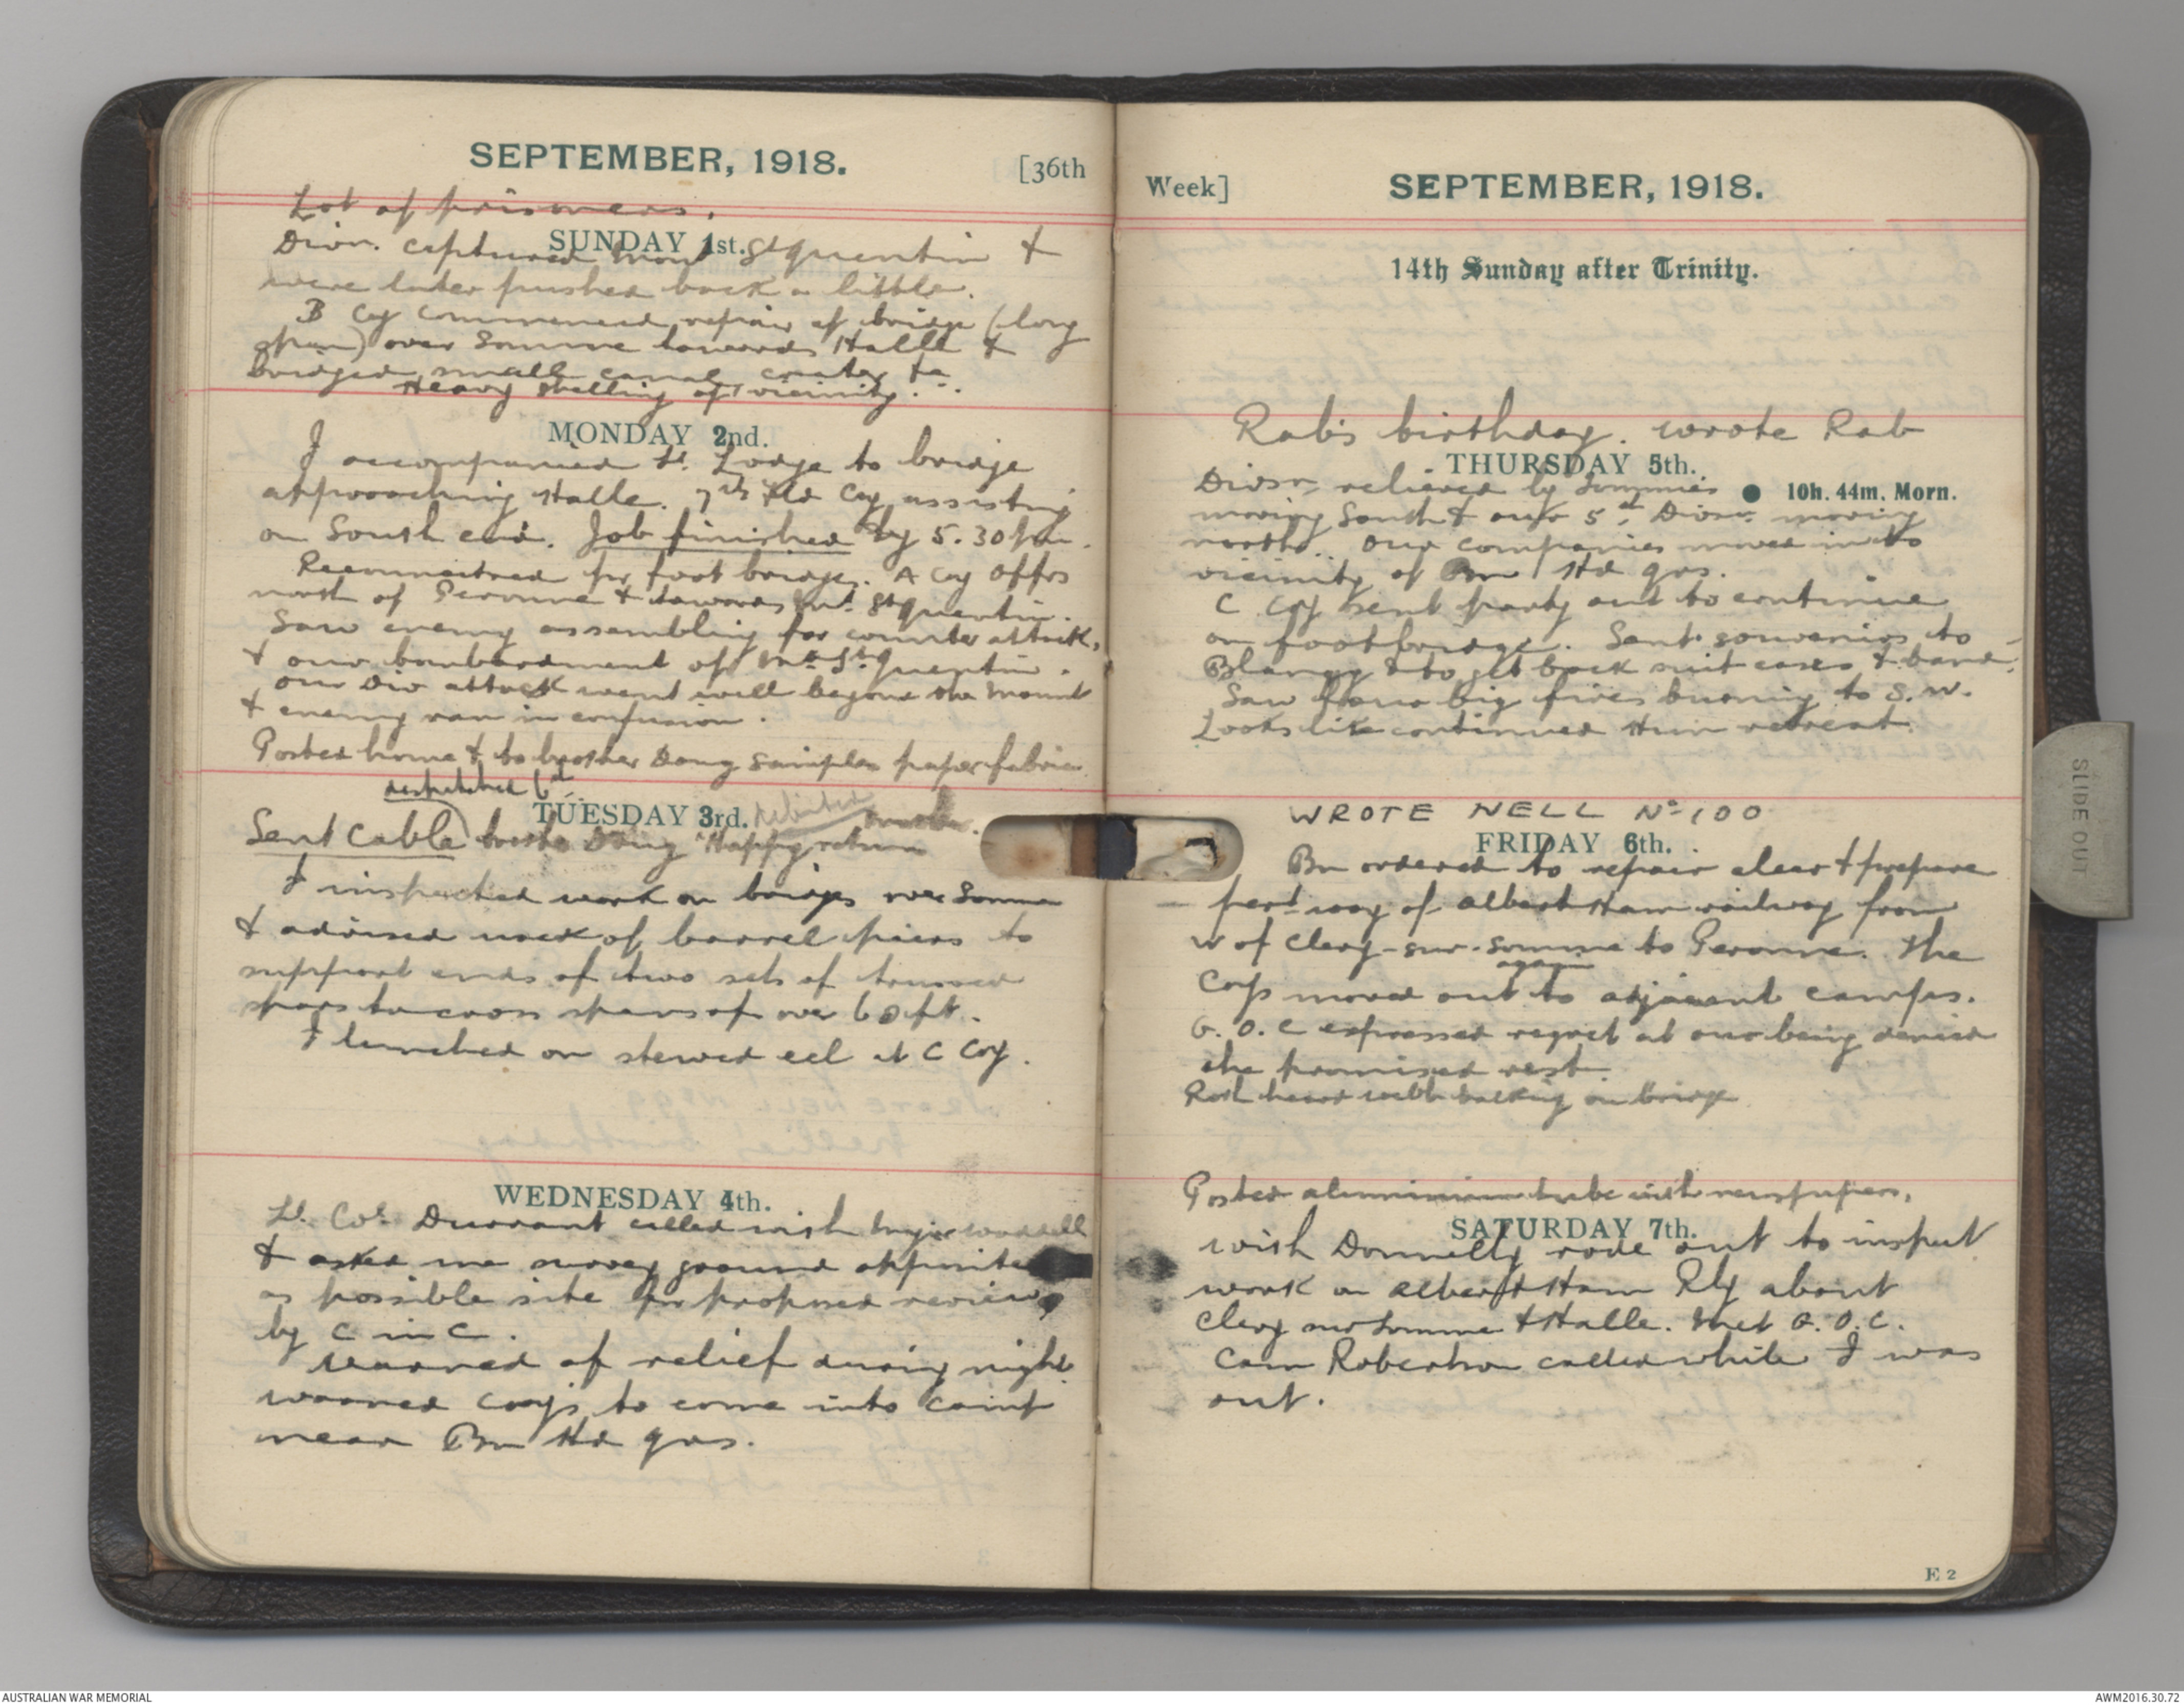 SEPTEMBER, 1918.
[36th
Lot of prisoners.
SUNDAY 1st.
Divn. captured Mont St Quentin &
were later pushed back a little.
B Coy commenced repair of bridge (long
span) over Somme towards Halle &
bridged small canal crater
Heavy shelling of vicinity.
MONDAY 2nd.
I accompanied Lt. Lodge to bridge
approaching Halle. 7th Fld Coy assisting
on South end. Job finished by 5.30 pm.
Reconnoitred for foot bridges. A Coy Offrs
north of Peronne & towards Mt. St Quentin.
Saw enemy assembling for counter attack,
& our bombardment of Mt. St. Quentin.
Our Div attack went well beyond the Mount
& enemy ran in confusion.
Posted home & to brother Doug samples paper fabric
despatched 6th
TUESDAY 3rd.
Sent cable Doug "Happy return
I inspected work on bridges over Somme
& advised use of barrel piers to
support ends of two sets of trussed
spars to cross spans of over 60 ft.
I lunched on stewed eel at C Coy.
WEDNESDAY 4th.
Lt. Col. Durrant called with Major
& asked me survey ground opposite
as possible site for proposed review
by C in C.
Warned of relief during night
warned coys to come into camp
near Bn Hd qrs.
Week]
SEPTEMBER, 1918.
14th Sunday after Trinity.
Rab's birthday. Wrote Rab
THURSDAY 5th.
10h. 44m. Morn.
Divsn. relieved by Tommies
moving South & our 5th Divsn. moving
north. Our companies moved into
vicinity of Bn Hd qrs.
C Coy sent party out to continue
on footbridge. Sent souvenirs to
Blangy & to get back suit cases & band.
Saw four big fires burning to S.W.
Looks like continued Hun retreat.
WROTE NELL No 100
FRIDAY 6th.
Bn ordered to repair clear & prepare
permt way of Albert Ham railway from
W of Clery-sur-Somme to Peronne. The
again
Coys moved out to adjacent camps.
G.O.C expressed regret at our being denied
the promised rest.
heard talking on bridge
Posted aluminium tube with newspapers.
SATURDAY 7th.
With Donnelly rode out to inspect
work on Albert Ham Rly about
Clery sur Somme & Halle. Met G.O.C.
Cam Robertson called while I was
out.
E 2
SLIDE OUT
AUSTRALIAN WAR MEMORIAL
AWM2016.30.72